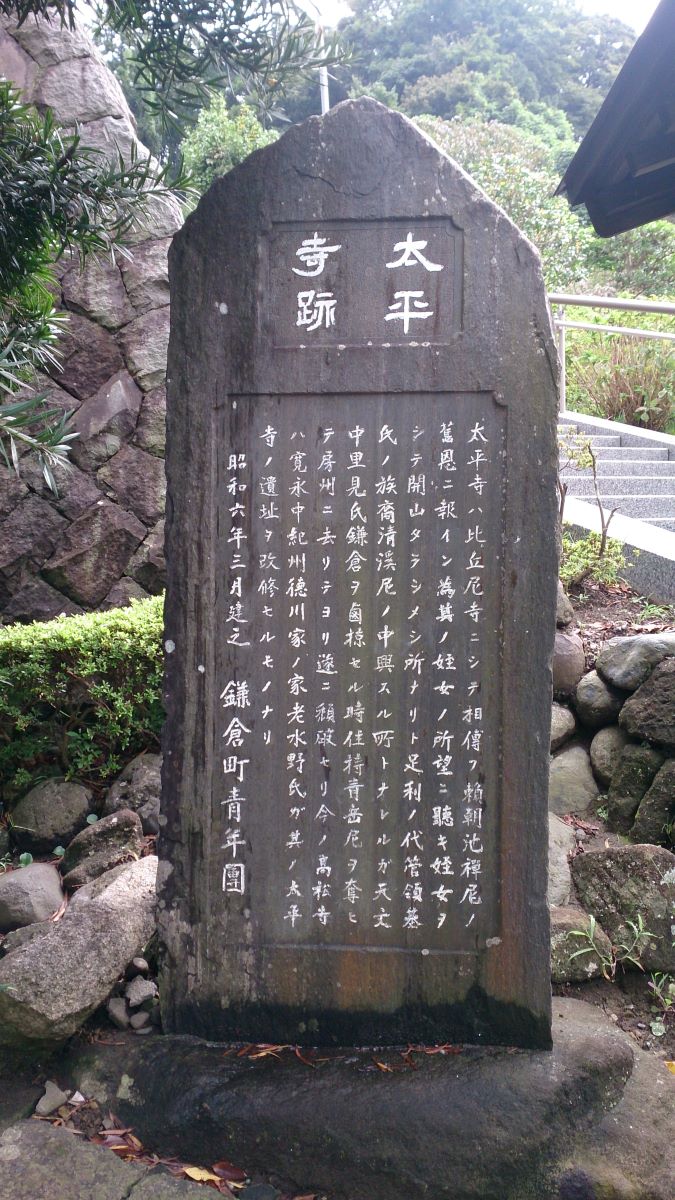 太平
寺跡
太平寺ハ比丘尼寺ニシテ相傳フ頼朝池禅尼ノ
舊恩ニ報イン為其ノ姪女ノ所望ニ聽キ姪女ヲ
シテ開山タラシメシ所ナリト足利ノ代管領基
氏ノ族裔清渓尼ノ中興スル所トナレルガ天文
中里見氏鎌倉ヲ鹵掠セル時住持青岳尼ヲ奪ヒ
テ房州ニ去リテヨリ遂ニ頽破セリ今ノ高松寺
ハ寛永中紀州徳川家ノ家老水野氏ガ其ノ太平
寺ノ遺址ヲ改修セルモノナリ
昭和六年三月建之 鎌倉町青年團